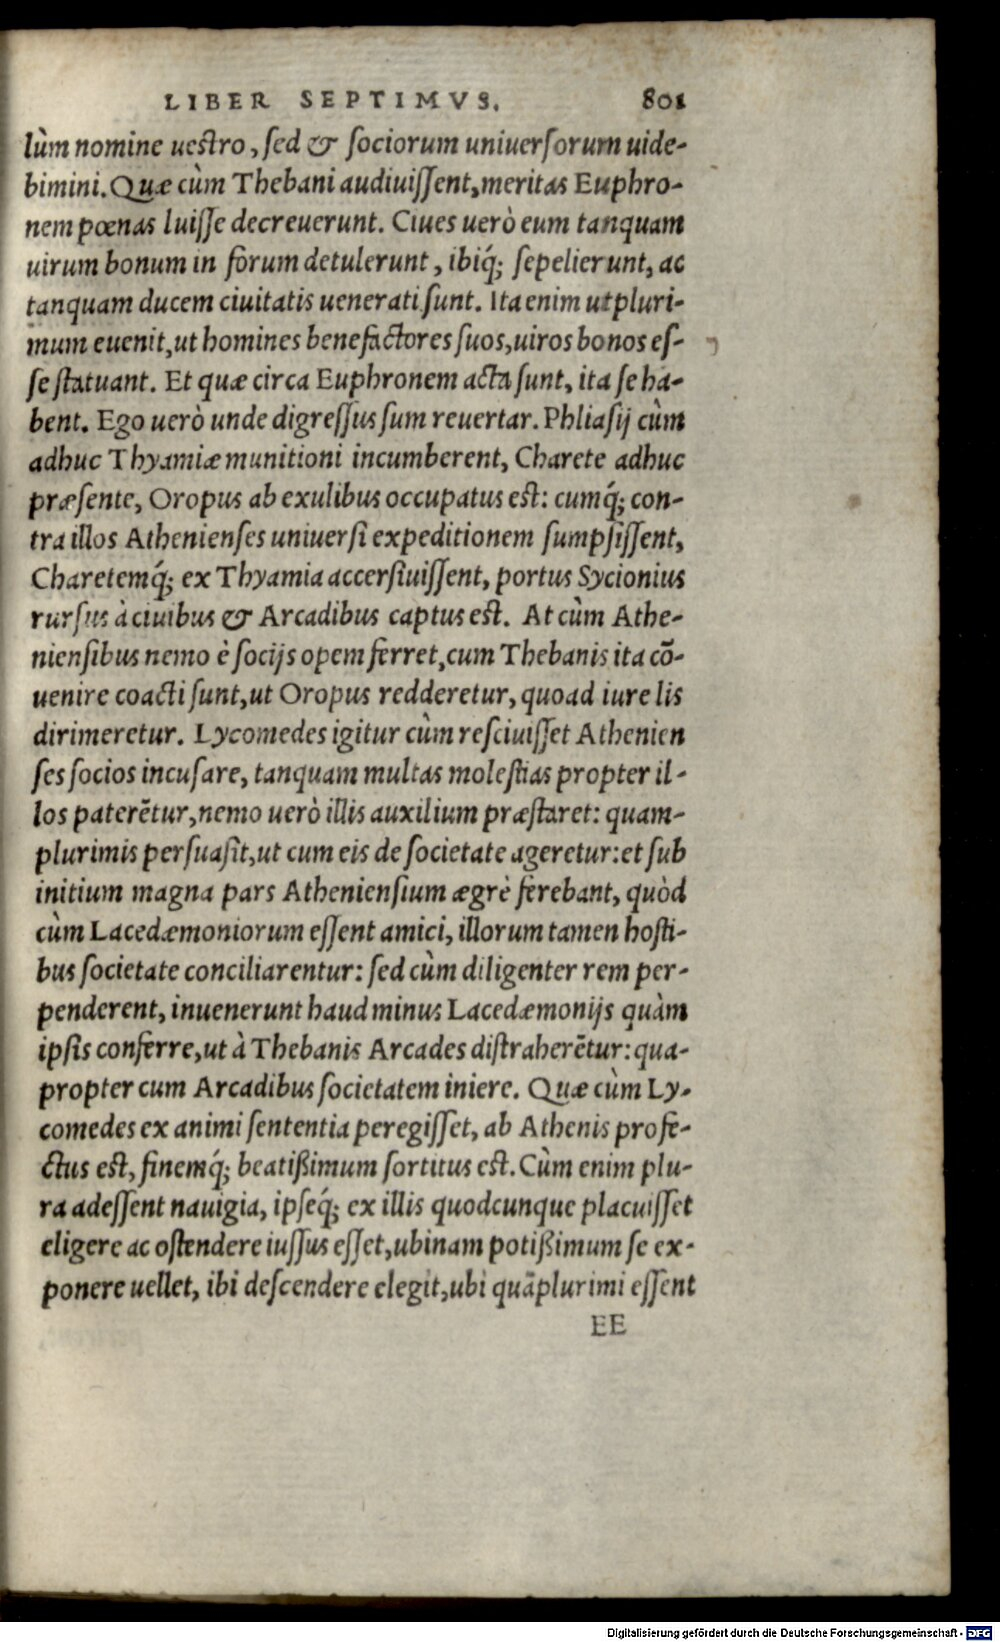 LIBER SEPTIMVS. 801
lùm nomine uestro, sed & sociorum uniuersorum uide-
bimini. Quæ cùm Thebani audiuissent, meritas Euphro-
nem pœnas luisse decreuerunt. Ciues uerò eum tanquam
uirum bonum in forum detulerunt, ibiq́; sepelierunt, ac
tanquam ducem ciuitatis uenerati sunt. Ita enim ut pluri-
mum euenit, ut homines benefactores suos, uiros bonos es-
se statuant. Et quæ circa Euphronem acta sunt, ita se ha-
bent. Ego uerò unde digressus sum reuertar. Phliasij cùm
adhuc Thyamiæ munitioni incumberent, Charete adhuc
præsente, Oropus ab exulibus occupatus est: cumq́; con-
tra illos Athenienses uniuersi expeditionem sumpsissent,
Charetemq́; ex Thyamia accersiuissent, portus Sycionius
rursus à ciuibus & Arcadibus captus est. At cùm Athe-
niensibus nemo è socijs opem ferret, cum Thebanis ita cō-
uenire coacti sunt, ut Oropus redderetur, quoad iure lis
dirimeretur. Lycomedes igitur cùm resciuisset Athenien
ses socios incusare, tanquam multas molestias propter il-
los paterẽtur, nemo uerò illis auxilium præstaret: quam-
plurimis persuasit, ut cum eis de societate ageretur: et sub
initium magna pars Atheniensium ægrè ferebant, quòd
cùm Lacedæmoniorum essent amici, illorum tamen hosti-
bus societate conciliarentur: sed cùm diligenter rem per-
penderent, inuenerunt haud minus Lacedæmonijs quàm
ipsis conferre, ut à Thebanis Arcades distraherẽtur: qua-
propter cum Arcadibus societatem iniere. Quæ cùm Ly-
comedes ex animi sententia peregisset, ab Athenis profe-
ctus est, finemq́; beatißimum sortitus est. Cùm enim plu-
ra adessent nauigia, ipseq́; ex illis quodcunque placuisset
eligere ac ostendere iussus esset, ubinam potißimum se ex-
ponere uellet, ibi descendere elegit, ubi quãplurimi essent
EE
Digitalisierung gefördert durch die Deutsche Forschungsgemeinschaft - DFG